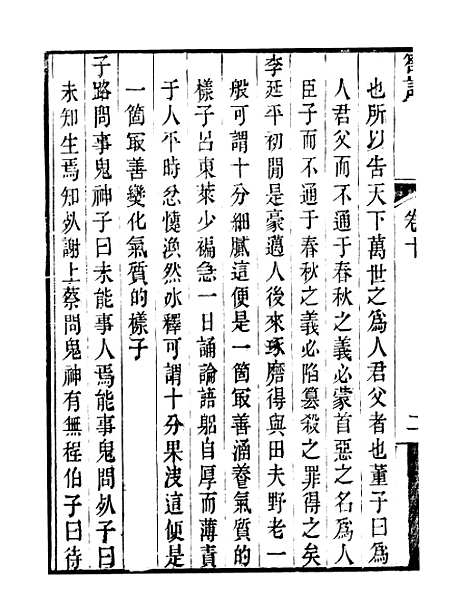 卷十
二
也所以告天下萬世之為人君父者也董子曰為
人君父而不通于春秋之義必蒙首惡之名為人
臣子而不通于春秋之義必陷篡殺之罪得之矣
李延平初閒是豪邁人後來琢磨得與田夫野老一
般可謂十分細膩這便是一箇㝡善涵養氣質的
樣子呂東萊少褊急一日誦論語躬自厚而薄責
于人平時忿懥渙然氷釋可謂十分果決這便是
一箇㝡善變化氣質的樣子
子路問事鬼神子曰未能事人焉能事鬼問死子曰
未知生焉知死謝上蔡問鬼神有無程伯子曰待